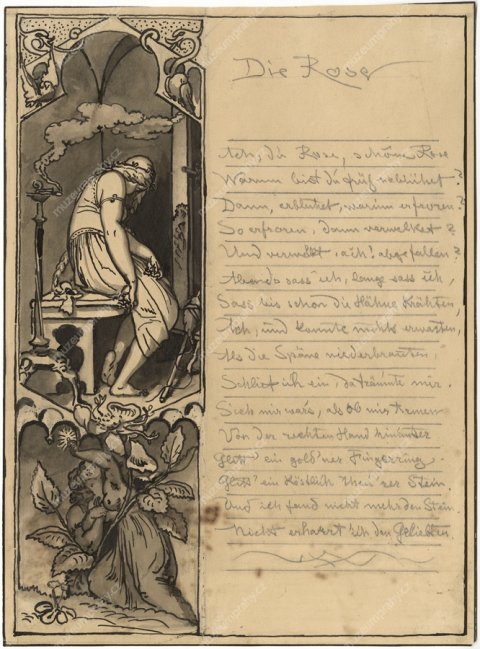 Die Rose
Ach, du Rose, schöne Rose
Warum bist du früh erblühet?
Dann, erblühet, warum erfroren?
So erfroren, dann verwelket?
Und verwelkt, ach! abgefallen?
Abends sass ich, lange sass ich,
Sass bis schon die Hähne krähten,
Ach, und konnte nichts erwarten,
Als die Späne niederbrannten,
Schlief ich ein, da träumte mir.
Sieh mir wars, als ob mir Armen
Von der rechten Hand hinunter
Glitt' ein gold'ner Fingerring.
Glitt' ein köstlich theu'rer Stein.
Und ich fand nicht mehr den Stein.
Nicht erharrt' ich den Geliebten.